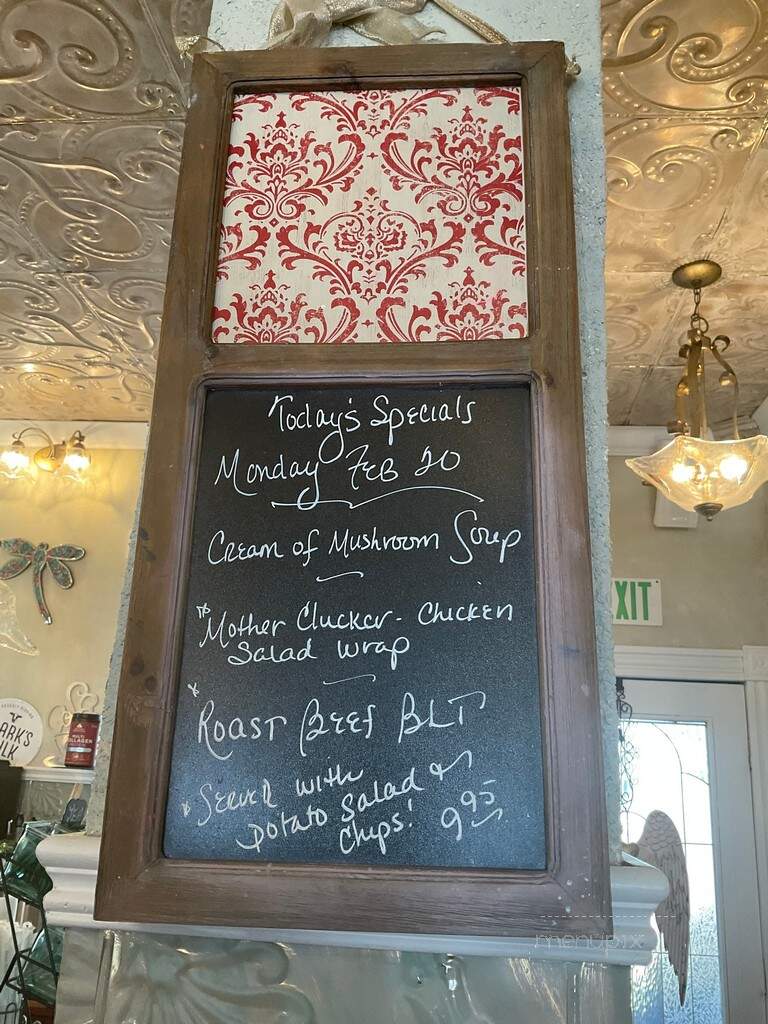 Today's Specials
Monday Feb 20
Cream of Mushroom Soup
*Mother Clucker - Chicken
Salad wrap
*
Roast Beef BLT
*Served with
potato salad or
chips! 9.95
EXIT
MULTI
COLLAGEN
menupix